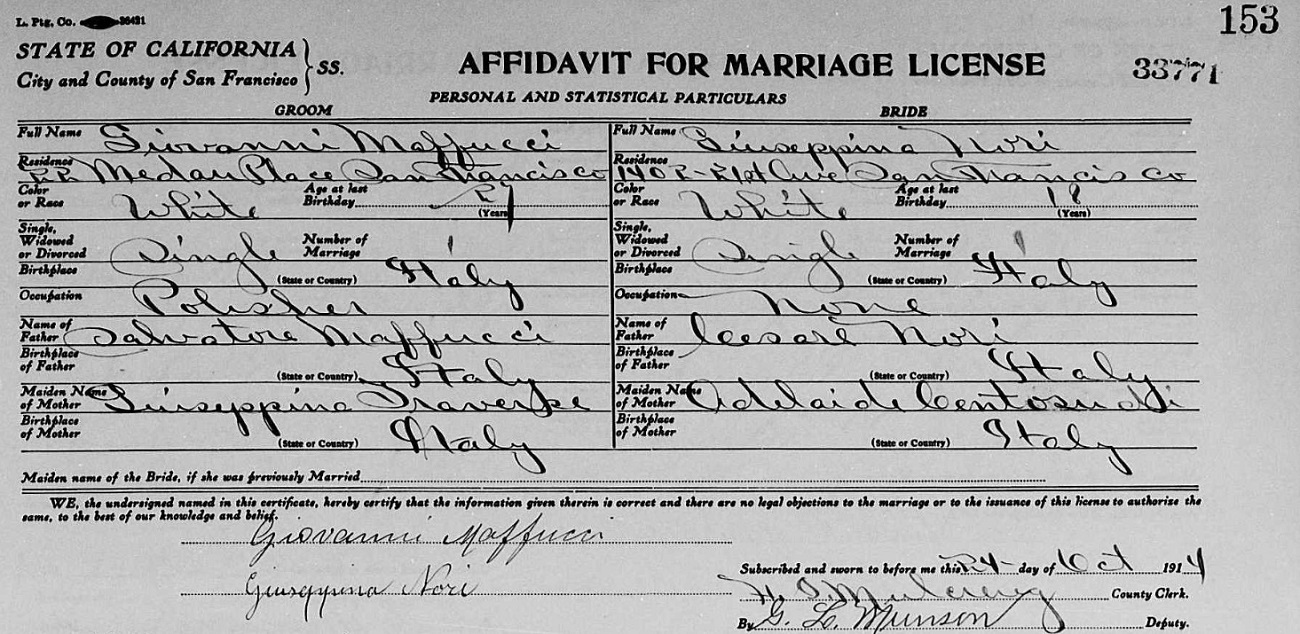 L. Ptg. Co. 36431
153
STATE OF CALIFORNIA
City and County of San Francisco } SS.
AFFIDAVIT FOR MARRIAGE LICENSE
33771
PERSONAL AND STATISTICAL PARTICULARS
GROOM
Full Name Giovanni Maffucci
Residence 22 Medau Place San Francisco
Color or Race White Age at last Birthday 27 (Years)
Single, Widowed or Divorced Single Number of Marriage 1
Birthplace (State or Country) Italy
Occupation Polisher
Name of Father Salvatore Maffucci
Birthplace of Father (State or Country) Italy
Maiden Name of Mother Giuseppina Traverse
Birthplace of Mother (State or Country) Italy
BRIDE
Full Name Giuseppina Nori
Residence 1402-21st Ave San Francisco
Color or Race White Age at last Birthday 18 (Years)
Single, Widowed or Divorced Single Number of Marriage 1
Birthplace (State or Country) Italy
Occupation None
Name of Father Cesare Nori
Birthplace of Father (State or Country) Italy
Maiden Name of Mother Adelaide Centosudi
Birthplace of Mother (State or Country) Italy
Maiden name of the Bride, if she was previously Married
WE, the undersigned named in this certificate, hereby certify that the information given therein is correct and there are no legal objections to the marriage or to the issuance of this license to authorize the
same, to the best of our knowledge and belief.
Giovanni Maffucci
Giuseppina Nori
Subscribed and sworn to before me this 24- day of Oct 1914
H. I. Mulcrevy County Clerk.
By G. L. Munson Deputy.